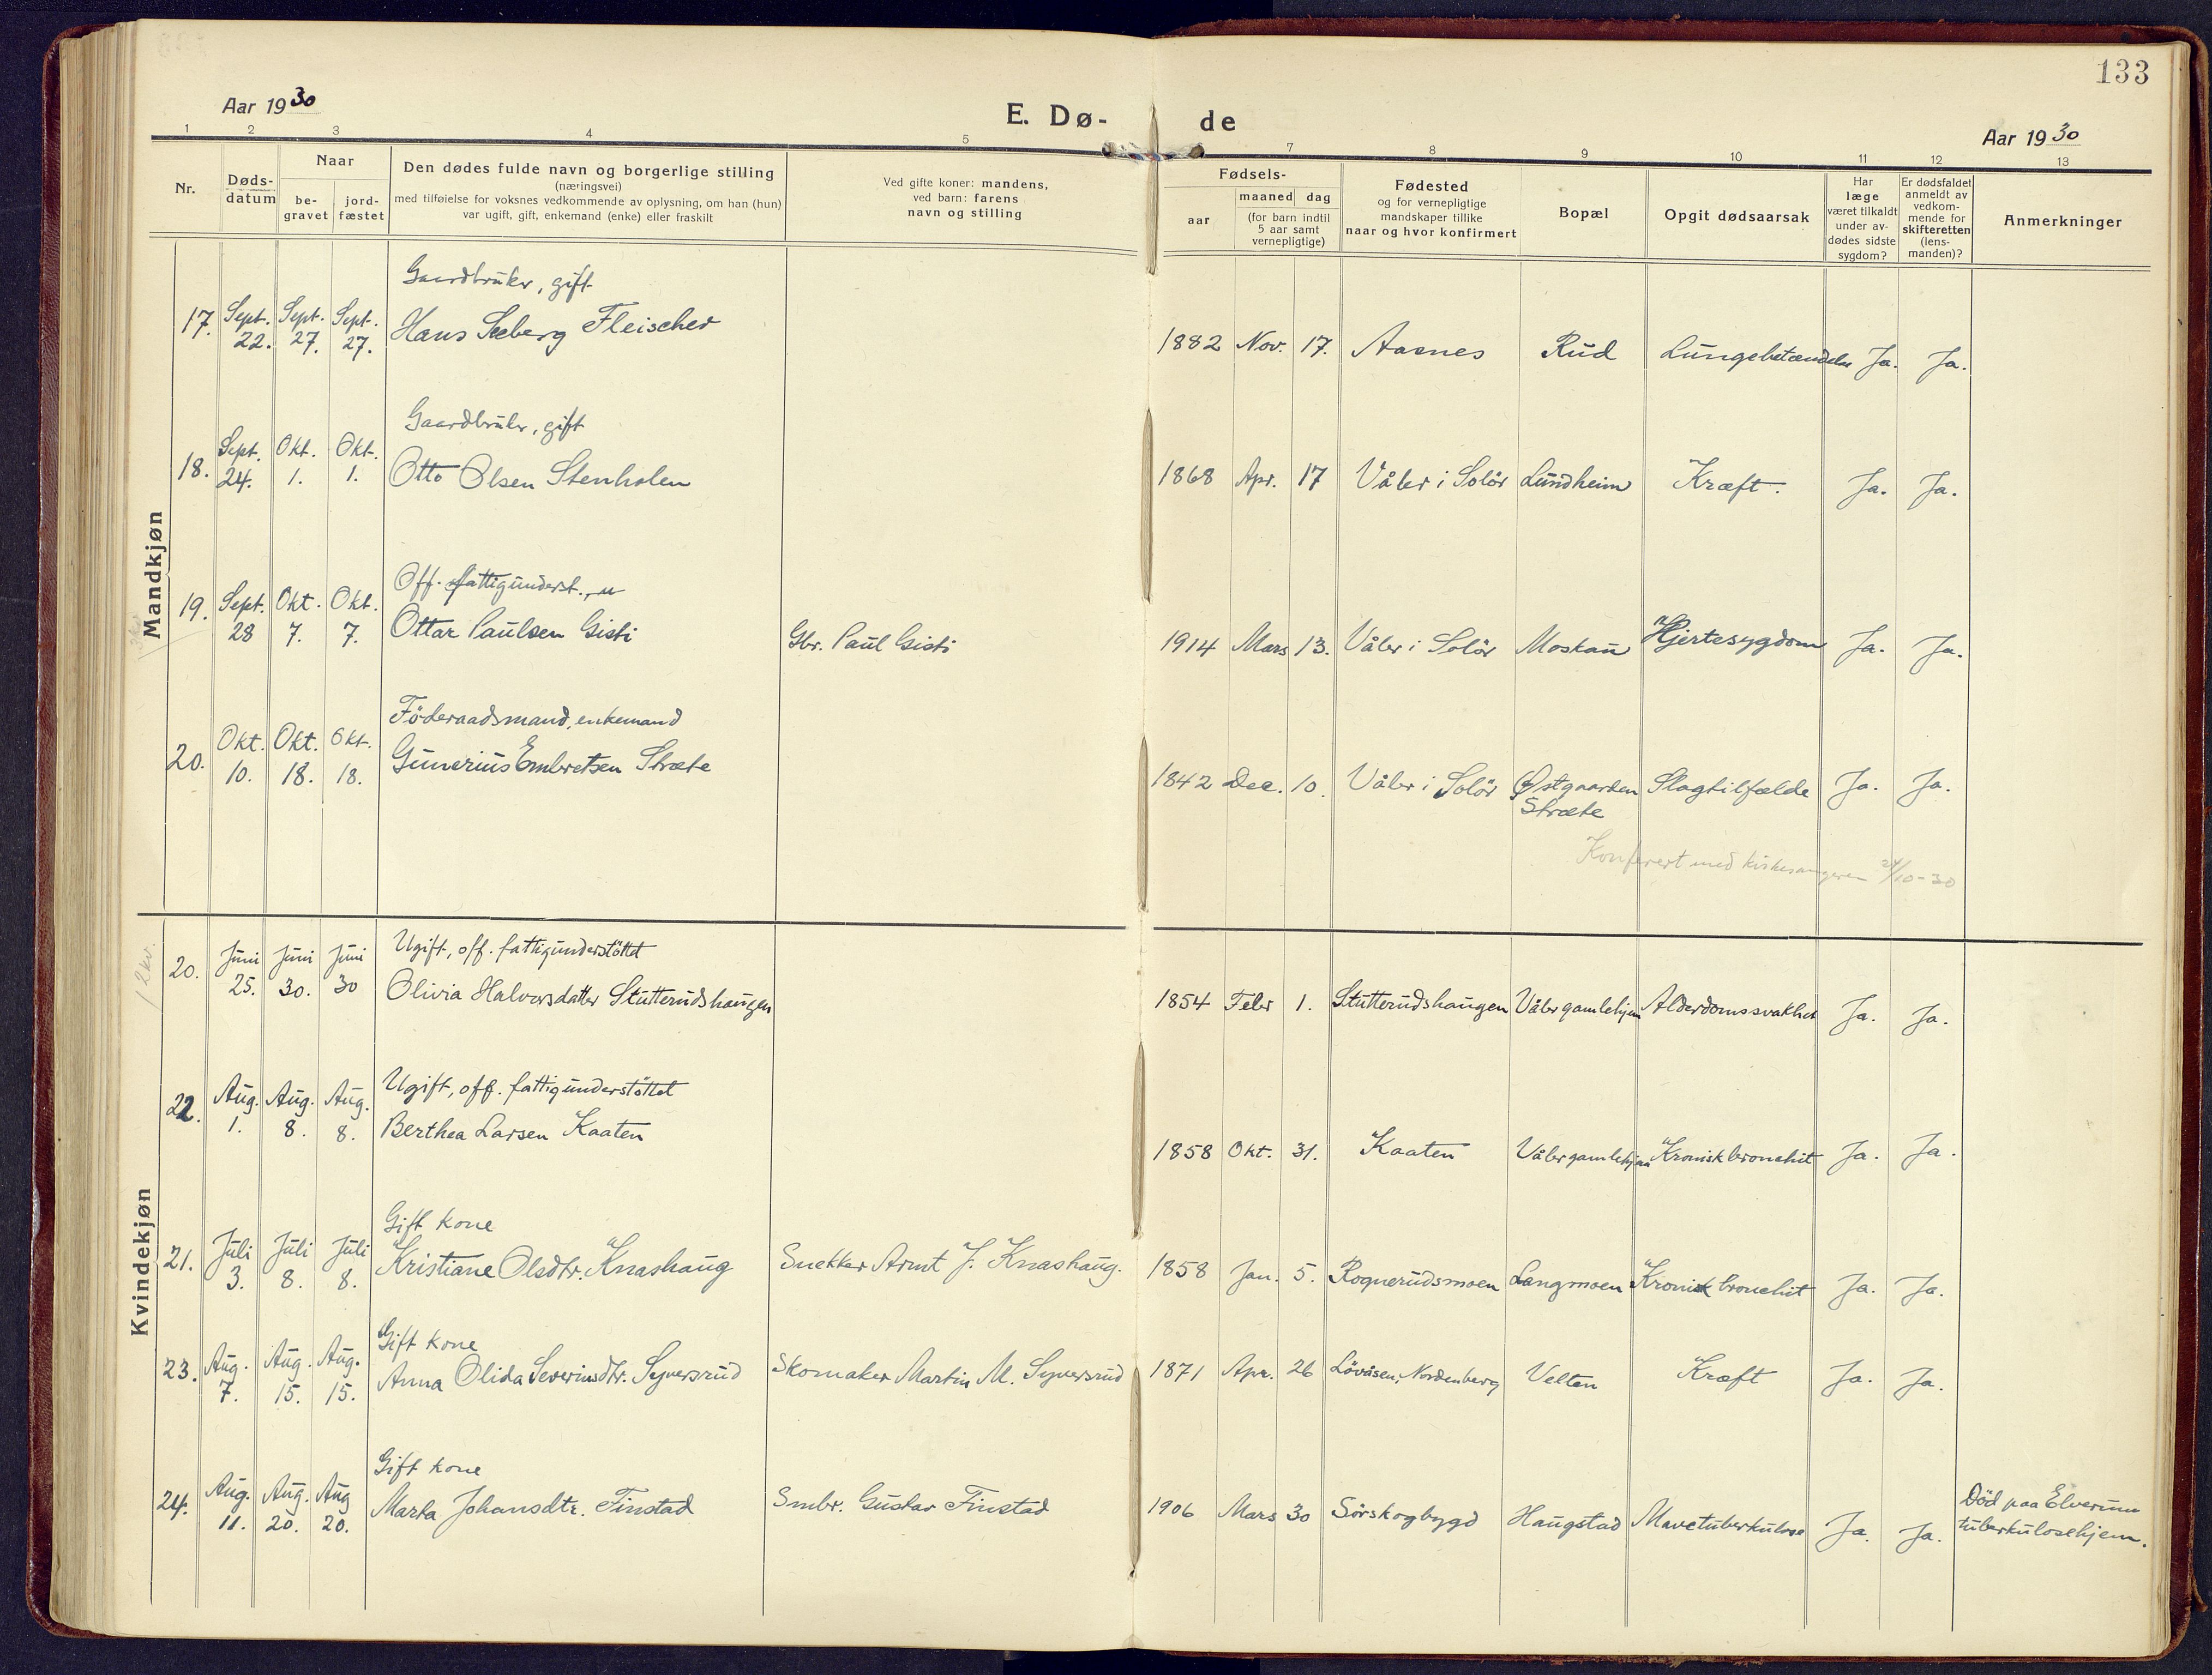 133
Aar 1930
E. Dø-
de
Aar 1930
1 2 3 4 5 7 8 9 10 11 12 13
Nr.
Døds-
datum
Naar
be-
gravet
jord-
fæstet
Den dødes fulde navn og borgerlige stilling
(næringsvei)
med tilføielse for voksnes vedkommende av oplysning, om han (hun)
var ugift, gift, enkemand (enke) eller fraskilt
Ved gifte koner: mandens,
ved barn: farens
navn og stilling
Fødsels-
aar
maaned dag
(for barn indtil
5 aar samt
vernepligtige)
Fødested
og for vernepligtige
mandskaper tillike
naar og hvor konfirmert
Bopæl
Opgit dødsaarsak
Har
læge
været tilkaldt
under av-
dødes sidste
sygdom?
Er dødsfaldet
anmeldt av
vedkom-
mende for
skifteretten
(lens-
manden)?
Anmerkninger
Mandkjøn
Gaardbruker, gift
17. Sept. Sept. Sept. Hans Seeberg Fleischer
22. 27. 27.
1882 Nov. 17. Aasnes Rud Lungebetændelse Ja. Ja.
Gaardbruker, gift
18. Sept. Okt. Okt. Otto Olsen Stenholen
24. 1. 1.
1868 Apr. 17 Våler i Solör Lundheim Kræft. Ja. Ja.
Off. fattigunderst., u
19. Sept. Okt. Okt. Ottar Paulsen Gisti Gbr. Paul Gisti
28 7. 7.
1914 Mars 13. Våler i Solör Moskau Hjertesygdom Ja. Ja.
Föderaadsmand, enkemand
20. Okt. Okt. Okt. Gunerius Embretsen Stræte
10. 18. 18.
1842 Dec. 10. Våler i Solör Østgaarden Slagtilfælde Ja. Ja.
Stræte
Konferert med kirkesangeren 21/10-30
Kvindekjøn
12kv.
Ugift, off. fattigunderstöttet
20. Juni Juni Juni Olivia Halvorsdatter Stutterudshaugen
25. 30. 30
1854 Febr 1. Stutterudshaugen Våler gamlehjem Alderdomssvakhet Ja. Ja.
Ugift, off. fattigunderstöttet
22. Aug. Aug. Aug. Berthea Larsen Kaaten
1. 8. 8.
1858 Okt. 31. Kaaten Våler gamlehjem Kronisk bronchit Ja. Ja.
Gift kone
21. Juli Juli Juli Kristiane Olsdtr. Knashaug Snekker Arnt J. Knashaug.
3. 8. 8.
1858 Jan. 5. Rognerudsmoen Langmoen Kronisk bronchit Ja. Ja.
Gift kone
23. Aug. Aug. Aug. Anna Olida Severinsdtr. Syversrud Skomaker Martin M. Syversrud
7. 15. 15.
1871 Apr. 26 Lövåsen, Nordenberg Velten Kræft Ja. Ja.
Gift kone
24. Aug. Aug. Aug Marta Johansdtr. Finstad Smbr. Gustav Finstad
11. 20. 20.
1906 Mars 30 Sörskogbygd Haugstad Mavetuberkulose Ja. Ja.
Död paa Elverum
tuberkulosehjem.